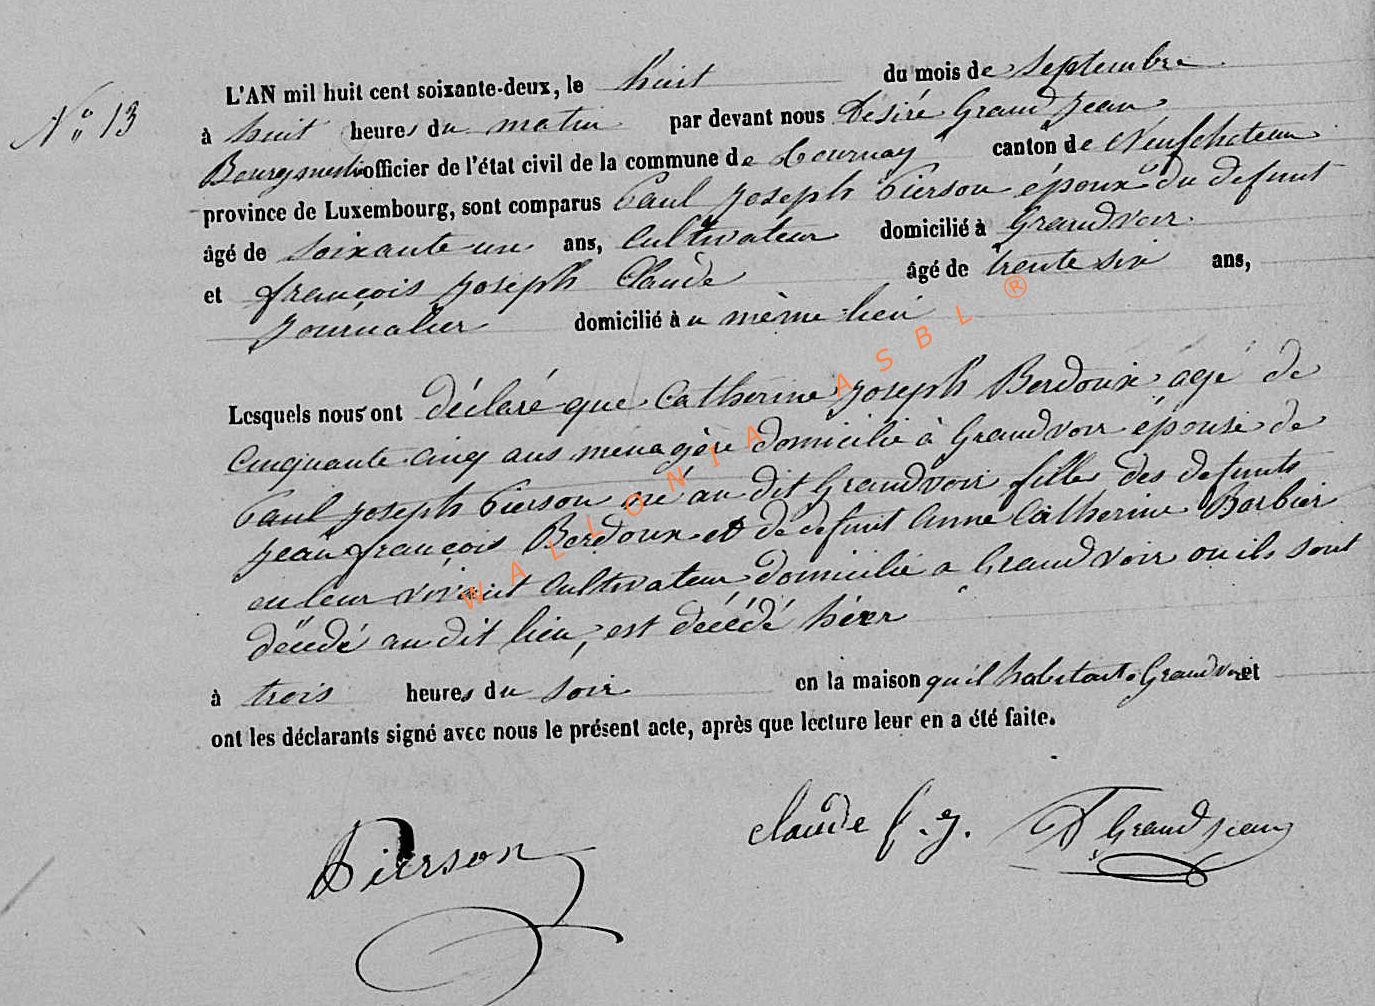 N° 13
L'AN mil huit cent soixante-deux, le huit du mois de Septembre
à huit heures du matin par devant nous Désiré Grandjean
Bourgmestre officier de l'état civil de la commune de Tournay canton de Neufchateau
province de Luxembourg, sont comparus Paul Joseph Pierson époux du defunt
âgé de soixante un ans, Cultivateur domicilié à Grandvoir
et françois Joseph Claude âgé de trente six ans,
Journalier domicilié à u même lieu
Lesquels nous ont déclaré que Catherine Joseph Berdoux agé de
Cinquante cinq ans menagère domicilié à Grandvoir épouse de
Paul Joseph Pierson né au dit Grandvoir fille des defunts
Jean françois Berdoux et de defunt Anne Catherine Barbier
en leur vivant Cultivateur domicilié a Grandvoir ou ils sont
décédé au dit lieu, est décédé hier
à trois heures du soir en la maison qu'il habitait à Grandvoir et
ont les déclarants signé avec nous le présent acte, après que lecture leur en a été faite.
Pierson
claude f. j.
D Grandjean
WALLONIA ASBL ®